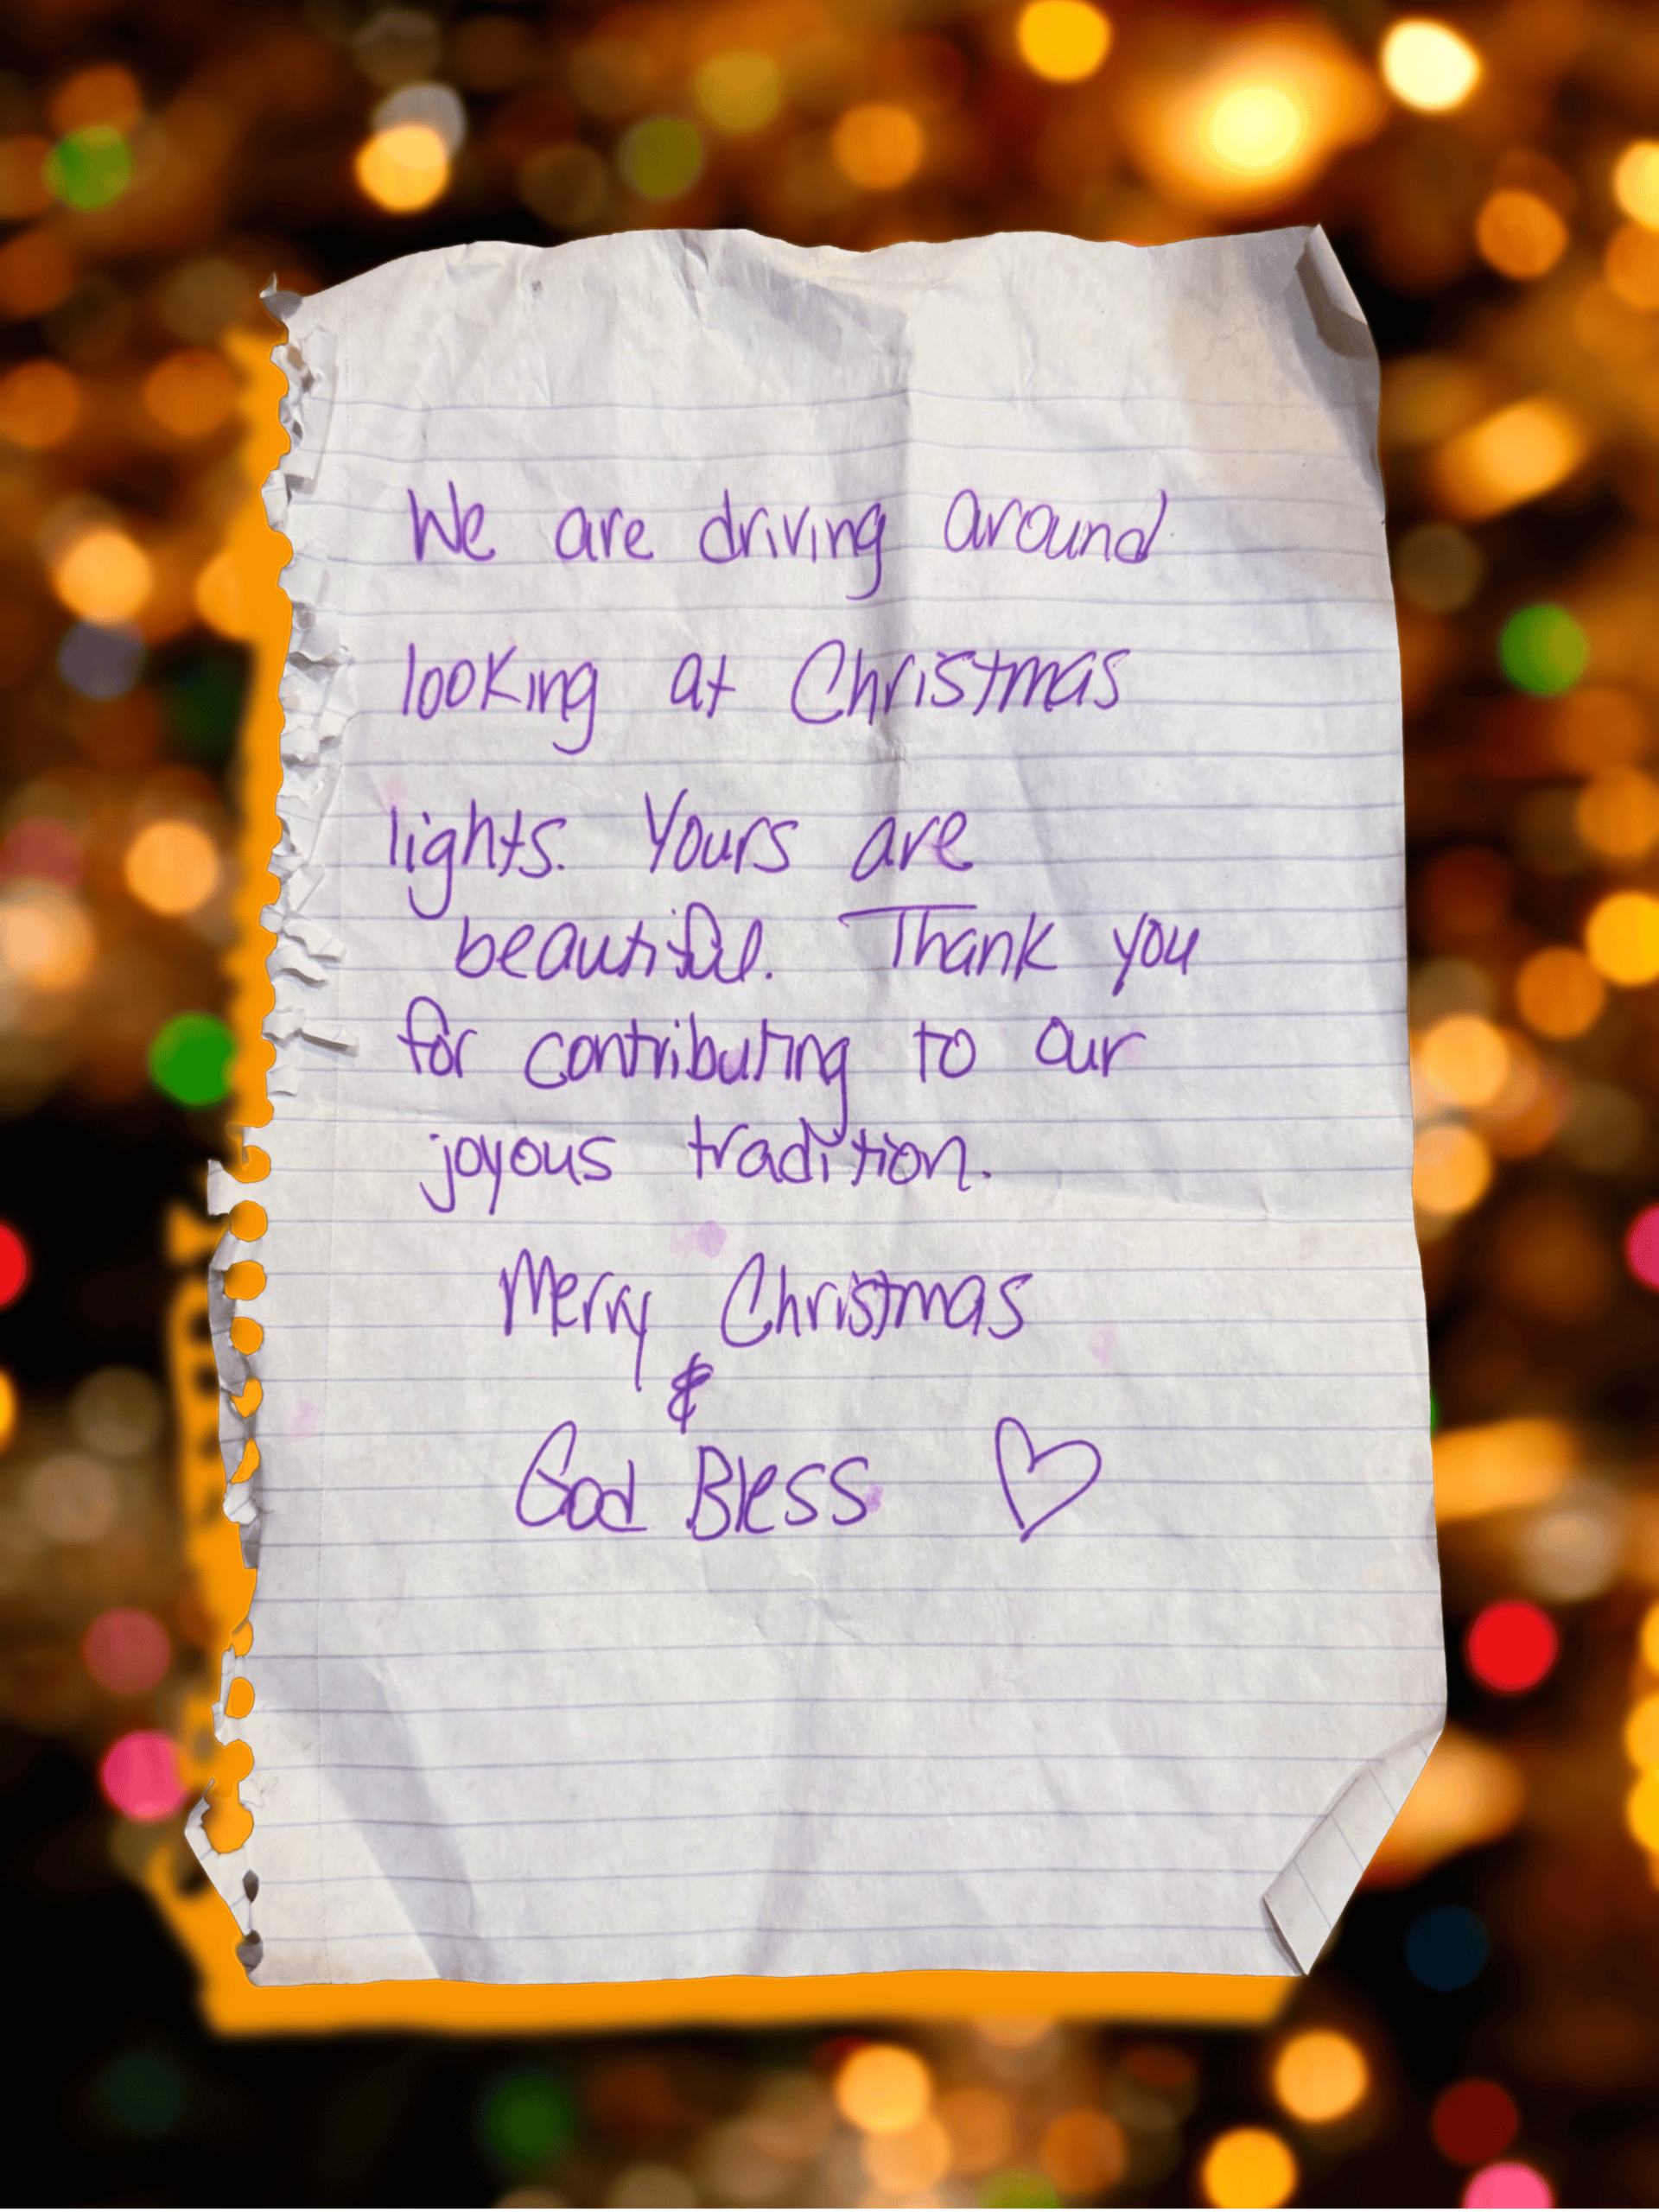 We are driving around
looking at Christmas
lights. Yours are
beautiful. Thank you
for contributing to our
joyous tradition.
Merry Christmas
&
God Bless ♡